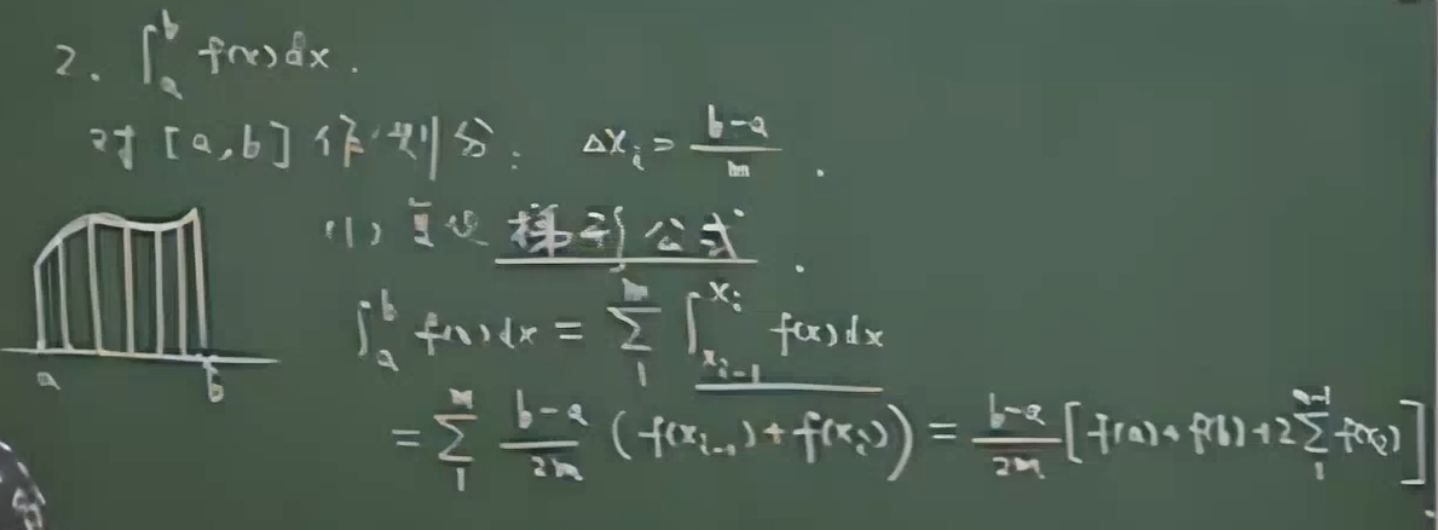 2. ∫_a^b f(x)dx.
对 [a,b] 作划分: Δx_i = (b-a)/m .
(1) 复化 梯形公式 .
∫_a^b f(x)dx = Σ_1^m ∫_{x_{i-1}}^{x_i} f(x)dx
= Σ_1^m (b-a)/2m (f(x_{i-1})+f(x_i)) = (b-a)/2m [f(a)+f(b)+2Σ_1^{m-1} f(x_i)]
a b